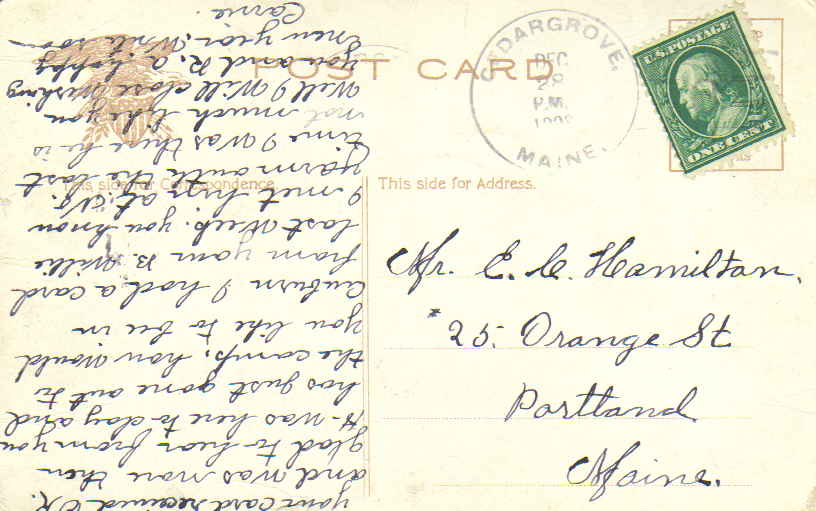 POST CARD
CEDARGROVE,
DEC
28
P.M.
MAINE.
U.S. POSTAGE
ONE CENT
This side for Correspondence.
This side for Address.
Mr. E. C. Hamilton.
25. Orange St
Portland
Maine.
your card received O.K.
and was more then
glad to hear from you
H- was here to day and
has just gone out to
the camp, how would
you like to be in
Auburn I had a card
from your B. Willie
last Week. you know
I met him at No.
Yarmouth the last
time I was there he is
not much like you
Well I Will close Wishing
you and R. a happy
new year. Write soon
Carrie.